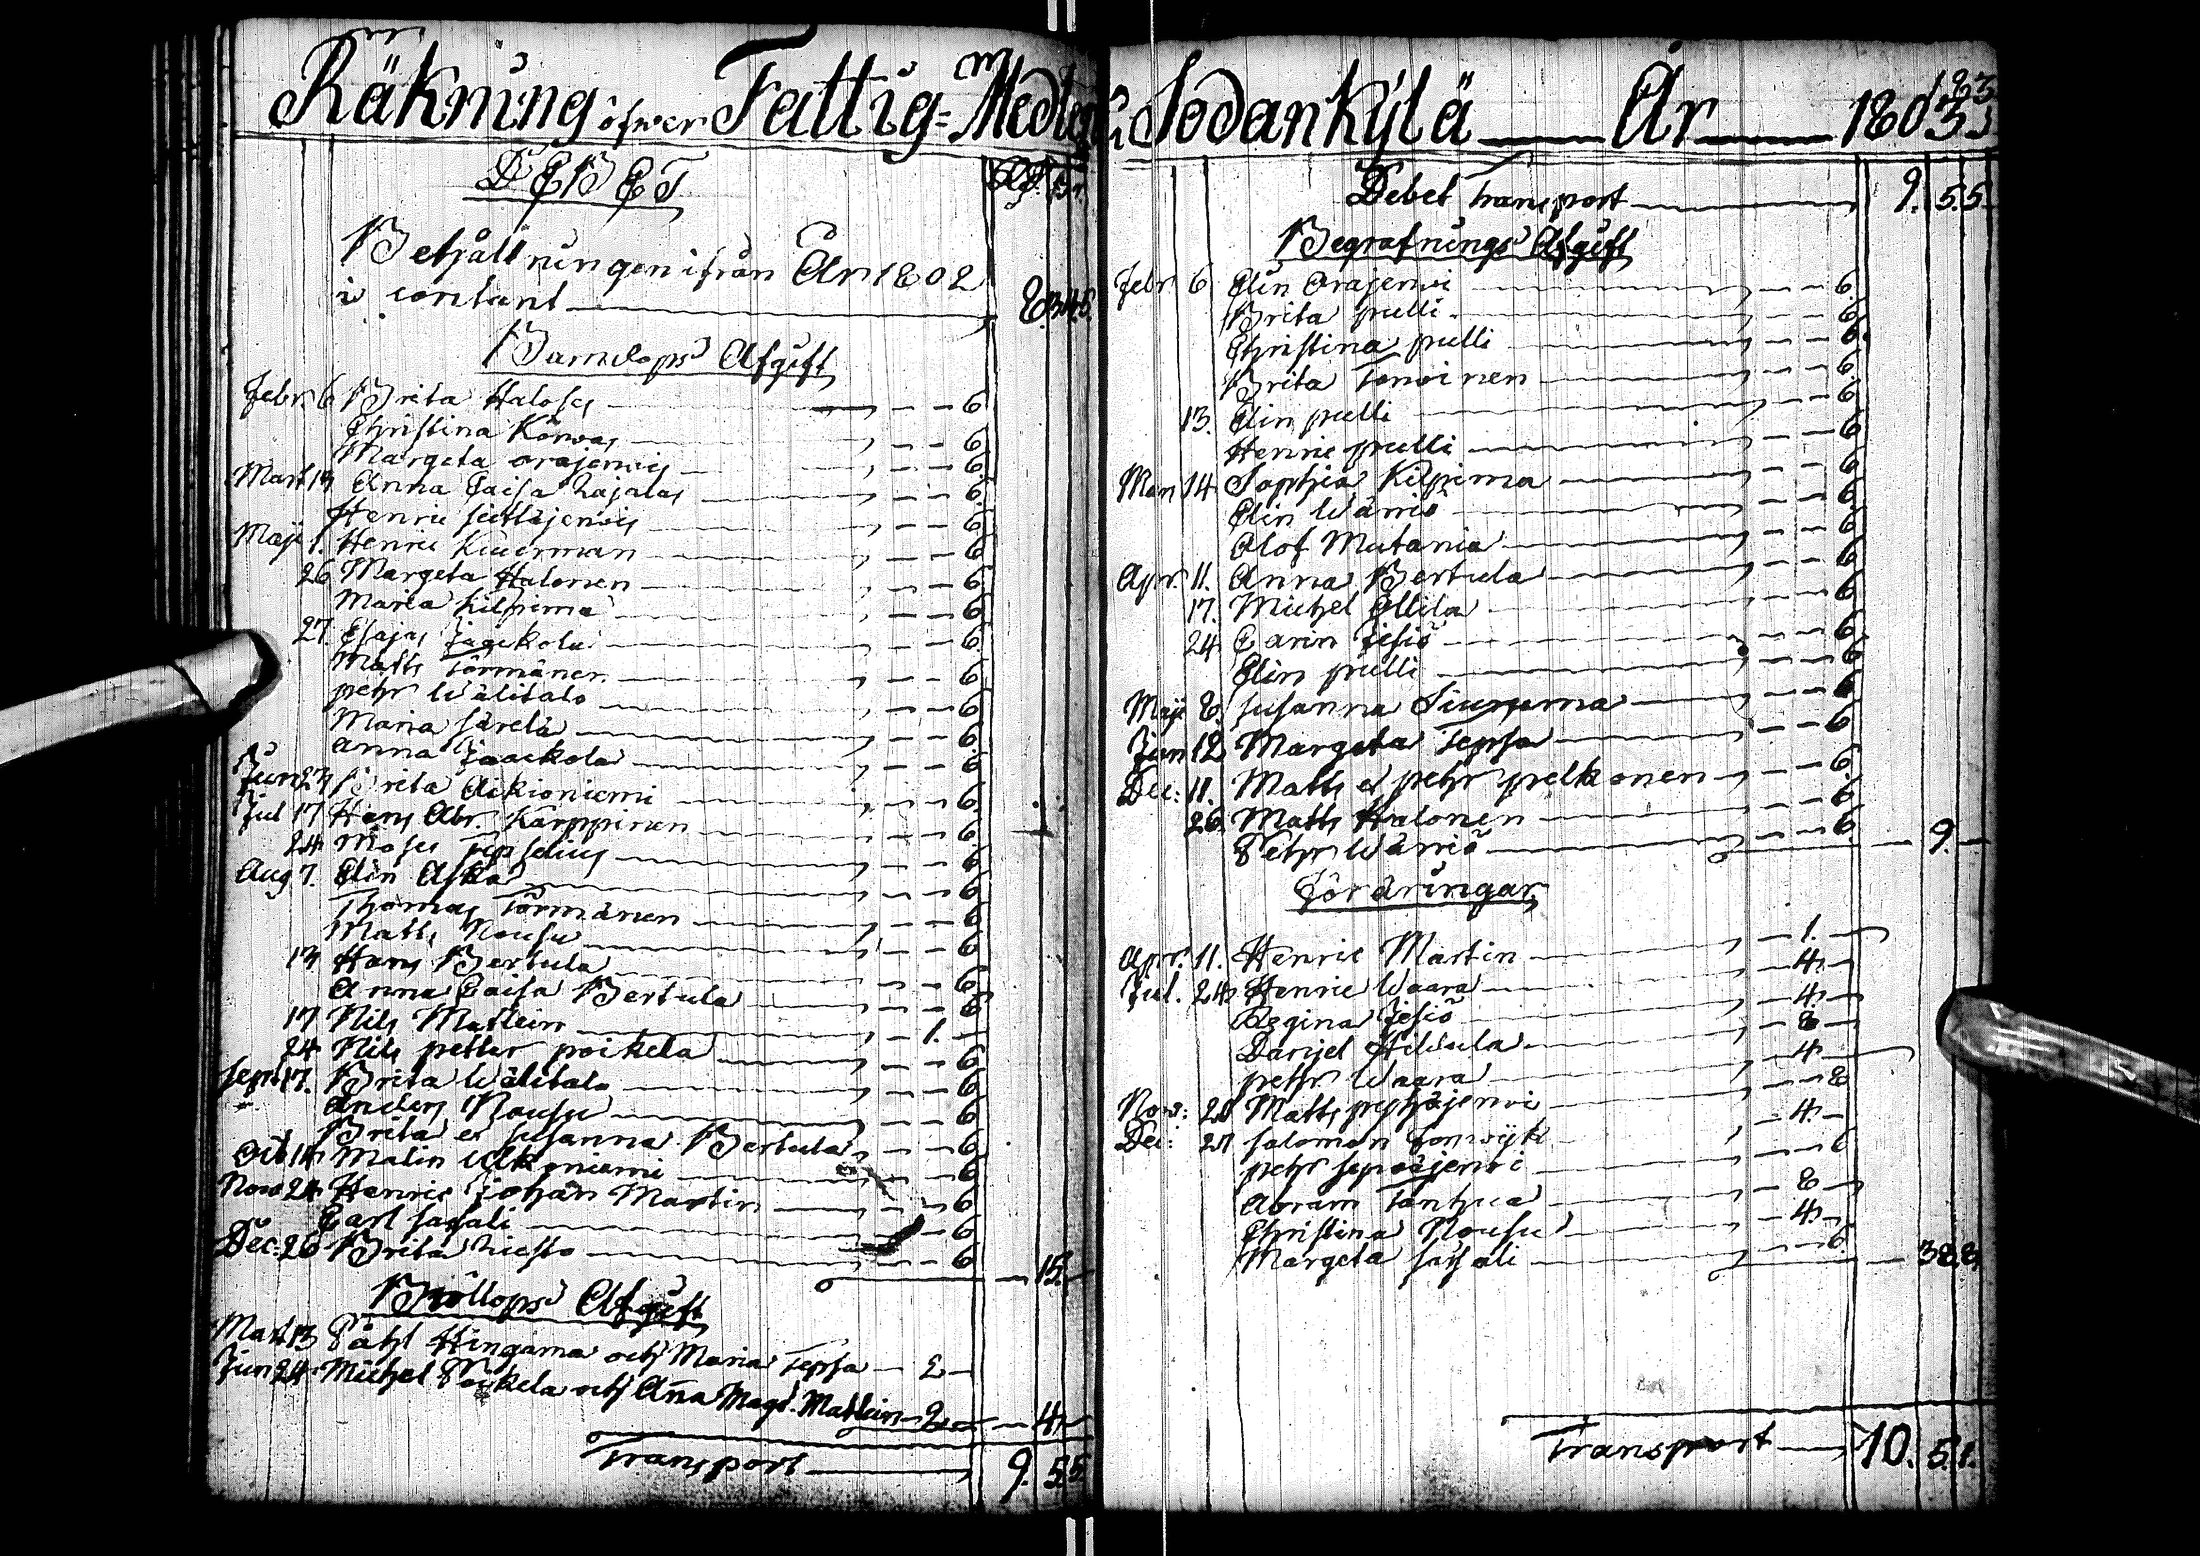 Räkning öfwer Fattig=Medlen
DEBET
Behållningen ifrån År 1802
i contant
Barnelops Afgift
Febr. 6 Brita Halosest — 6
Christina Körwas — 6
Margeta orajerwis — 6
Mart 13 Anna Caisa Lajalas — 6
Henric — 6
Maji 1. Henric Kuerman — 6
26 Margeta Halonen — 6
Maria Kilpima — 6
27. Esajas Jaackola — 6
Matts Törmänen — 6
pehr Wälitalo — 6
Maria särelä — 6
Anna Jaackola — 6
Jun 23 Brita Aikioniemi — 6
Jul 17 Hans Abr. Karppinen — 6
24 Moses Tepselius — 6
Aug 7. Elin Aska — 6
Thomas Törmänen — 6
Matts Nousu — 6
13 Hans Bertula — 6
Anna Caisa Bertula — 6
17 Nils Mattein — 1. —
24 Nils petter poikela — 6
sept 17. Brita Wälitalo — 6
Anders Nousu — 6
Brita et susanna Bertula — 6
Oct 14 Malin Ulkoniemi — 6
Nov 24 Henric Johan Martin — 6
Carl sassali — 6
Dec: 26 Brita Liesto — 6 — 15. —
Bröllops Afgift
Mart 13 Påhl Hingama och Maria Tepsa — 2 —
Jun 24 Michel Poikela och Aña Magd. Mattein — 2 — 4 —
Transport — 9. 5. 5.
i Sodankylä — År — 1803
Debet Transport — 9. 5. 5.
Begrafnings Afgift
Febr. 6 Elin Orajerwi — 6
Brita pulli — 6
Christina pulli — 6
Brita Tonoinen — 6
13. Elin pulli — 6
Henric pulli — 6
Mart 14 Sophia Kilpima — 6
Elin Wärriö — 6
Olof Mutania — 6
Apr. 11. Anna Bertula — 6
17. Michel Ollila — 6
24 Carin Jesiö — 6
Elin pulli — 6
Maji 8. susanna Siuruma — 6
Jun 12 Margeta Tepsa — 6
Dec: 11. Matts et pehr pelkonen — 6
26. Matts Halonen — 6
Pehr Wärriö — 6 — 9. —
Föräringar
Apr. 11. Henric Martin — 1. —
Jul. 24 Henric Waara — 4. —
Regina Jesiö — 4. —
Danjel Hiltula — 8 —
pehr Waara — 4. —
Nov: 20 Matts pyhäjerwi — 8
Dec: 27 saloman — 4. —
pehr — 6
Abram Tanhua — 8 —
Christina Nousu — 4. —
Margeta sassali — 6 — 38. 8.
Transport — 10. 5. 1.